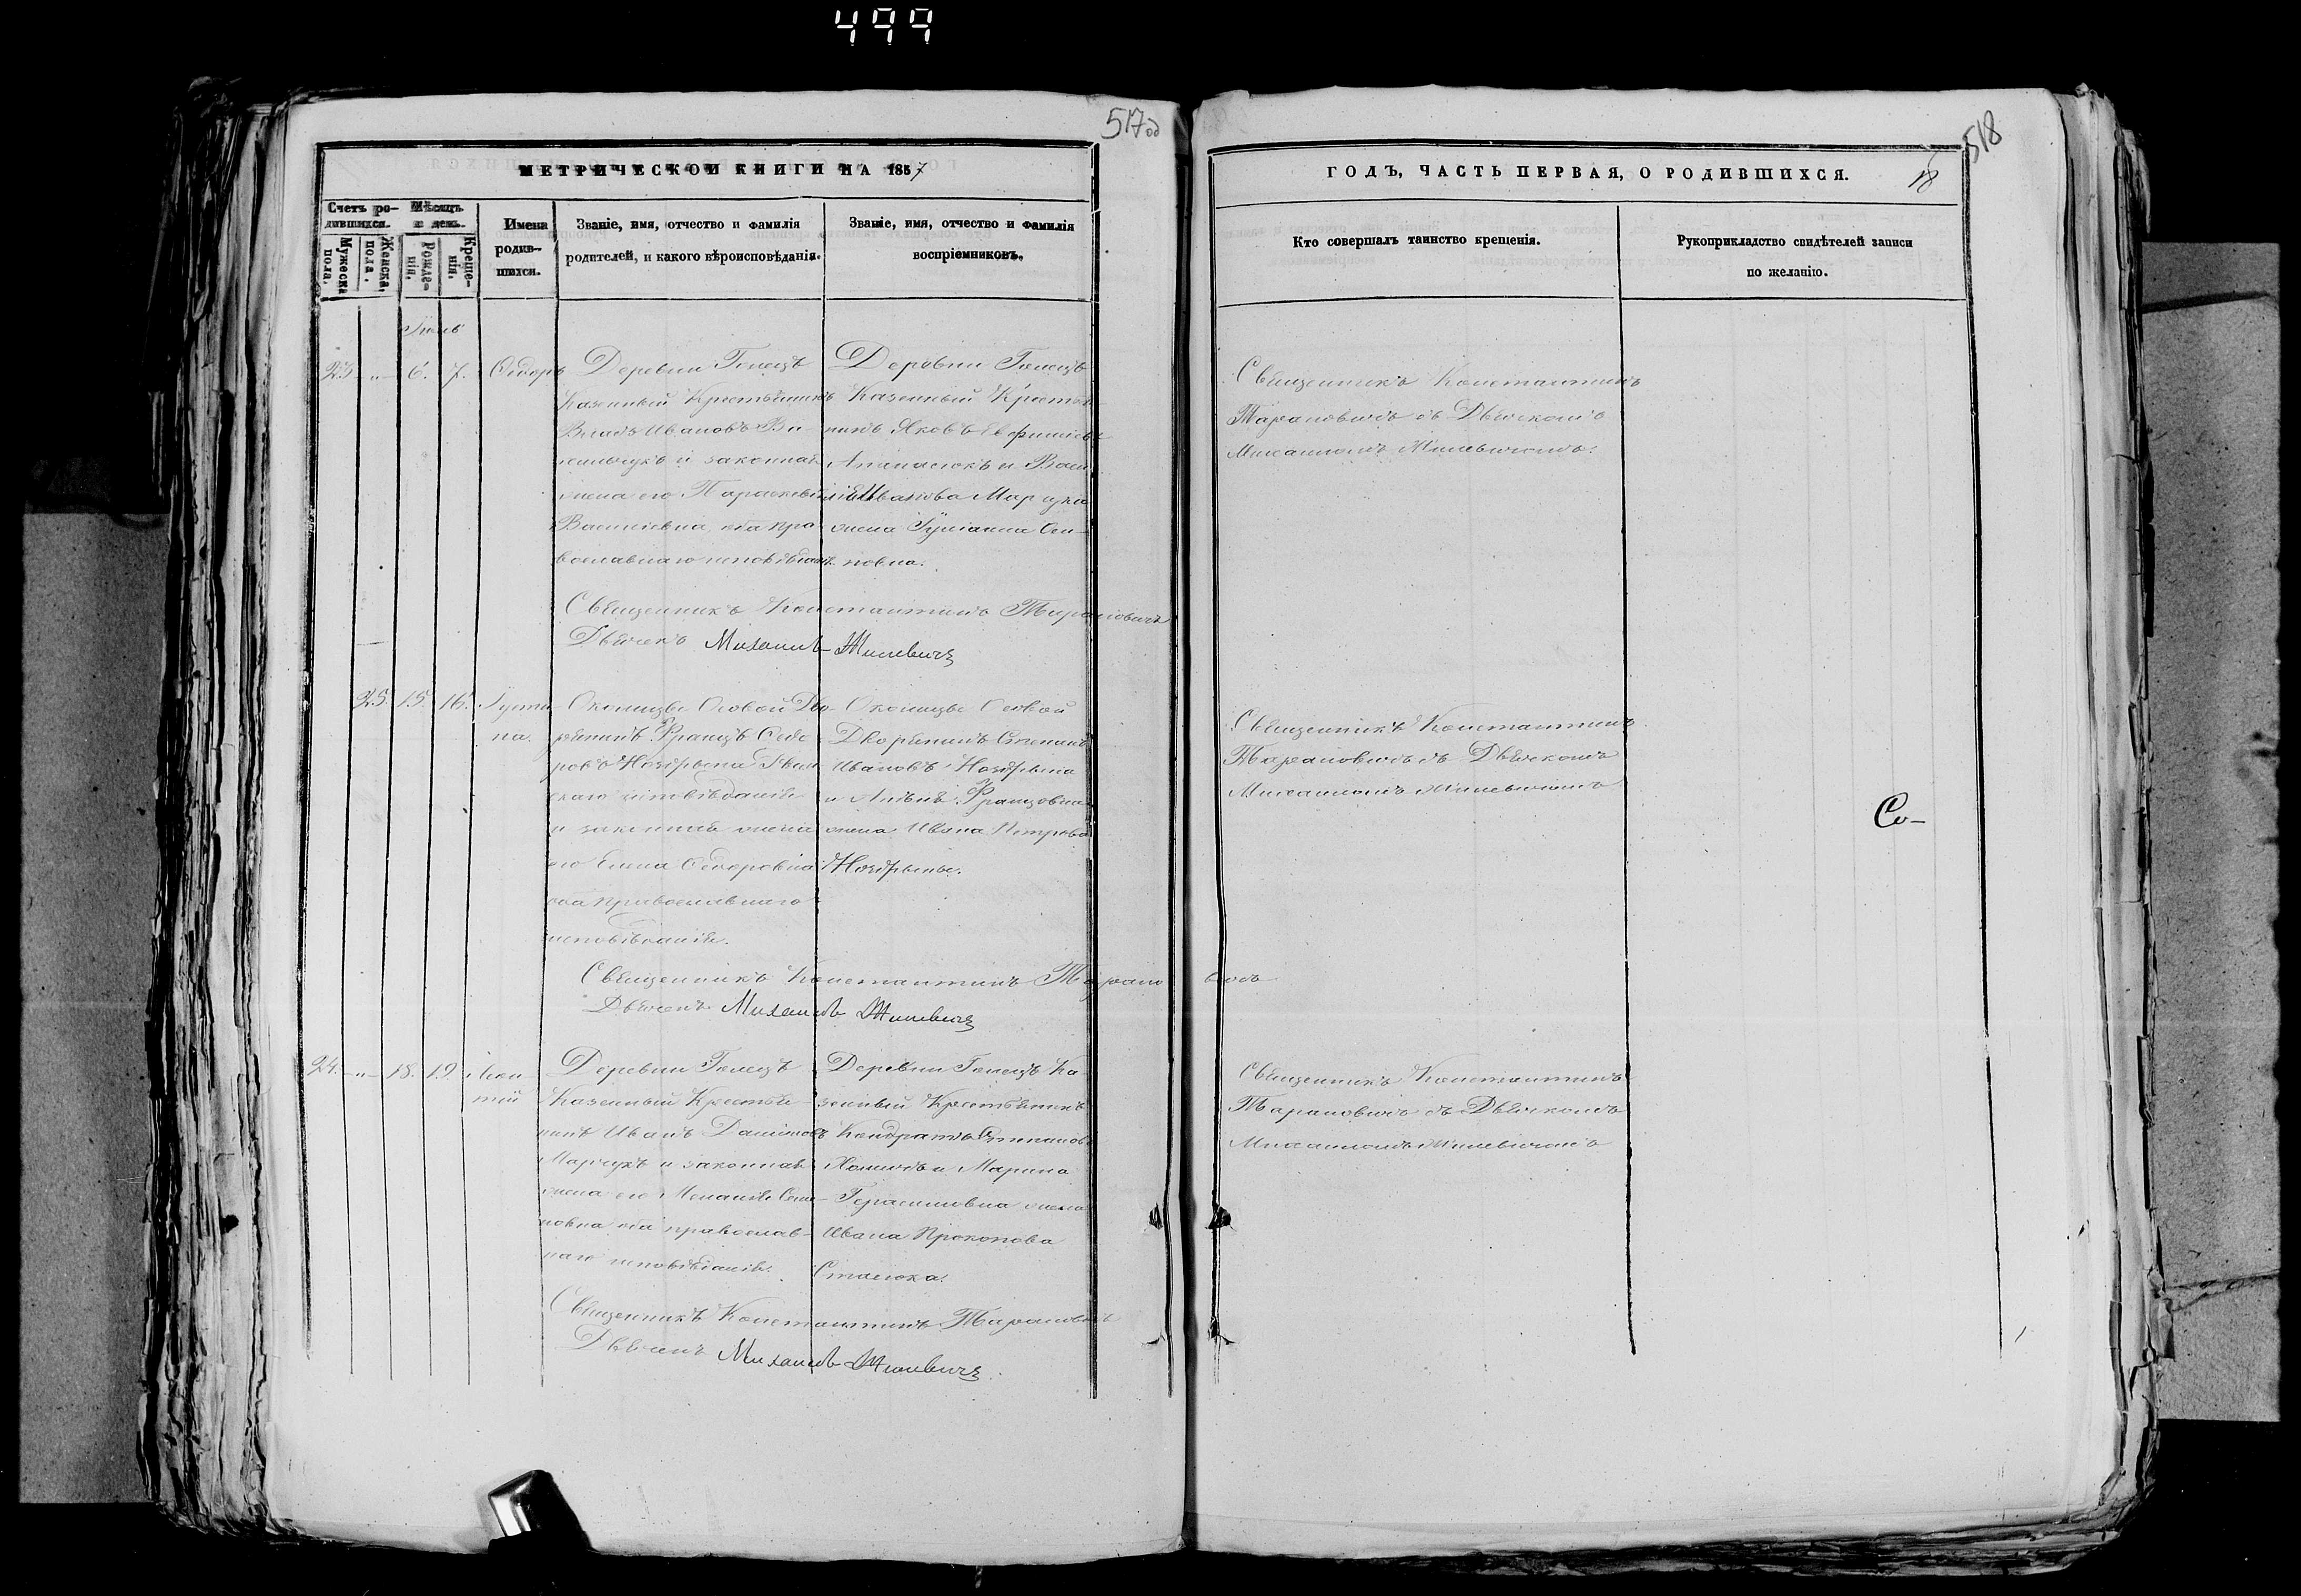 499
517 об
МЕТРИЧЕСКОЙ КНИГИ НА 1857
Счетъ ро-
дившихся.
Мужеска
пола.
Женска,
пола.
Мѣсяцъ
и день.
Рожде-
нія.
Креще-
нія.
Имена
родив-
шихся.
Званіе, имя, отчество и фамилія
родителей, и какого вѣроисповѣданія.
Званіе, имя, отчество и фамилія
воспріемниковъ.
23 - " - 6. 7.
Деревни
Казенный Крестьянинъ
Ивановъ
и законная
жена его Параскевія
Васильевна, оба пра
вославнаго исповѣданія.
Деревни
Казенный Крестья
нинъ Яковъ
и Васи
Иванова
жена
Священникъ Константинъ Тарановичъ
Дьячекъ Михаилъ Жилевичъ
25. 15. 16. Густи
на.
Околицы Осовой Дво
рянинъ Францъ Сидо
ровъ Ноздрына Рим
скаго исповѣданія
и законная жена
его Елена Сидоровна
православнаго
исповѣданія.
Околицы Осовой
Дворянинъ Степанъ
Ивановъ Ноздрына
и Францовна
жена Ивана Петрова
Ноздрыны.
Священникъ Константинъ Тарановичъ
Дьячекъ Михаилъ Жилевичъ
24. - " - 18. 19.
Деревни
Казенный Крестья
нинъ Иванъ Даниловъ
Марчукъ и законная
жена его Меланія Семе
новна оба православ
наго исповѣданія.
Деревни Ка
зенный Крестьянинъ
Кондратъ Степановъ
и Марина
Герасимовна жена
Ивана Прокопова
Сташюка.
Священникъ Константинъ Тарановичъ
Дьячекъ Михаилъ Жилевичъ
518
ГОДЪ, ЧАСТЬ ПЕРВАЯ, О РОДИВШИХСЯ.
18
Кто совершалъ таинство крещенія.
Рукоприкладство свидѣтелей записи
по желанію.
Священникъ Константинъ
Тарановичъ съ Дьячкомъ
Михаиломъ Жилевичомъ.
Священникъ Константинъ
Тарановичъ съ Дьячкомъ
Михаиломъ Жилевичомъ
Со-
Священникъ Константинъ
Тарановичъ съ Дьячкомъ
Михаиломъ Жилевичомъ